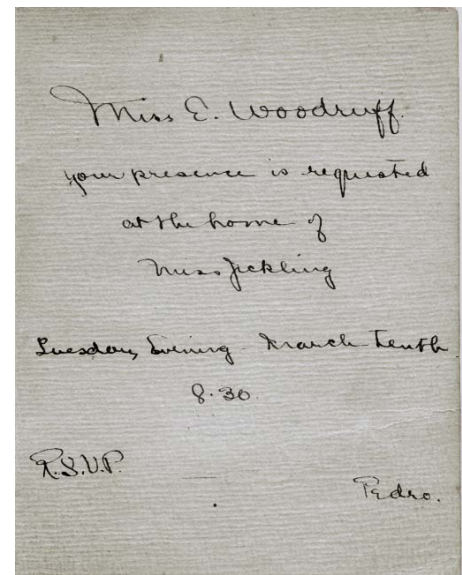 Miss E. Woodruff.
your presence is requested
at the home of
Miss Jickling
Tuesday Evening - March Tenth
8.30
R.S.V.P.
Pedro.